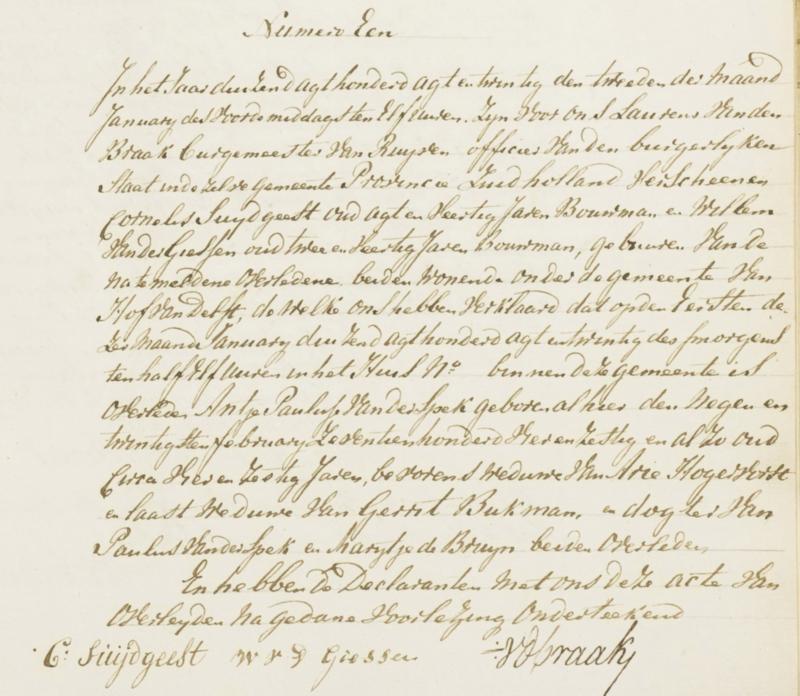 Numero Een
In het Jaar duizend agt honderd agt en twintig den tweeden der Maand
January des voordemiddags ten Elf uuren. Zyn voor ons Laurens van den
Braak burgemeester van Ruyven officier van den burgerlyken
Staat in de zelve gemeente Provincie Zuidholland verscheenen
Cornelis Suydgeest oud agt en veertig Jaren Bouwman en Willem
van der Giessen oud twee en veertig Jaren Bouwman, gebuuren van de
na te meldene overledene beiden wonende onder de gemeente van
Hof van Delft, de welke ons hebben verklaard dat op den Eersten de-
zer Maand January duizend agt honderd agt en twintig des smorgens
ten half Elf uuren in het Huis No binnen deze gemeente is
overleden Antje Paulusse van der Spek geboren alhier den Negen en
twintigsten february Zeventien honderd vier en Zestig en al zo oud
Circa vier en Zestig Jaren, bevorens weduwe van Arie Hogervorst
en laast weduwe van Gerrit Bukman, en dogter van
Paulus van der Spek en Marytje de Bruyn beiden overleden
En hebben de Declaranten met ons deze acte van
overleyden na gedane voorlezing onderteekend
C: Suijdgeest W V D Giessen VDBraak